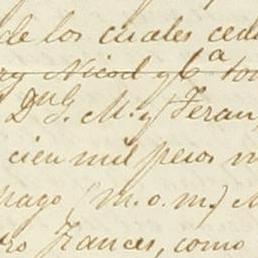 de los cuales ced
ry Nicod y Cª to
D. G. M. y Feran
cien mil pesos m
pago (m.o.m.) M
ro Frances, como